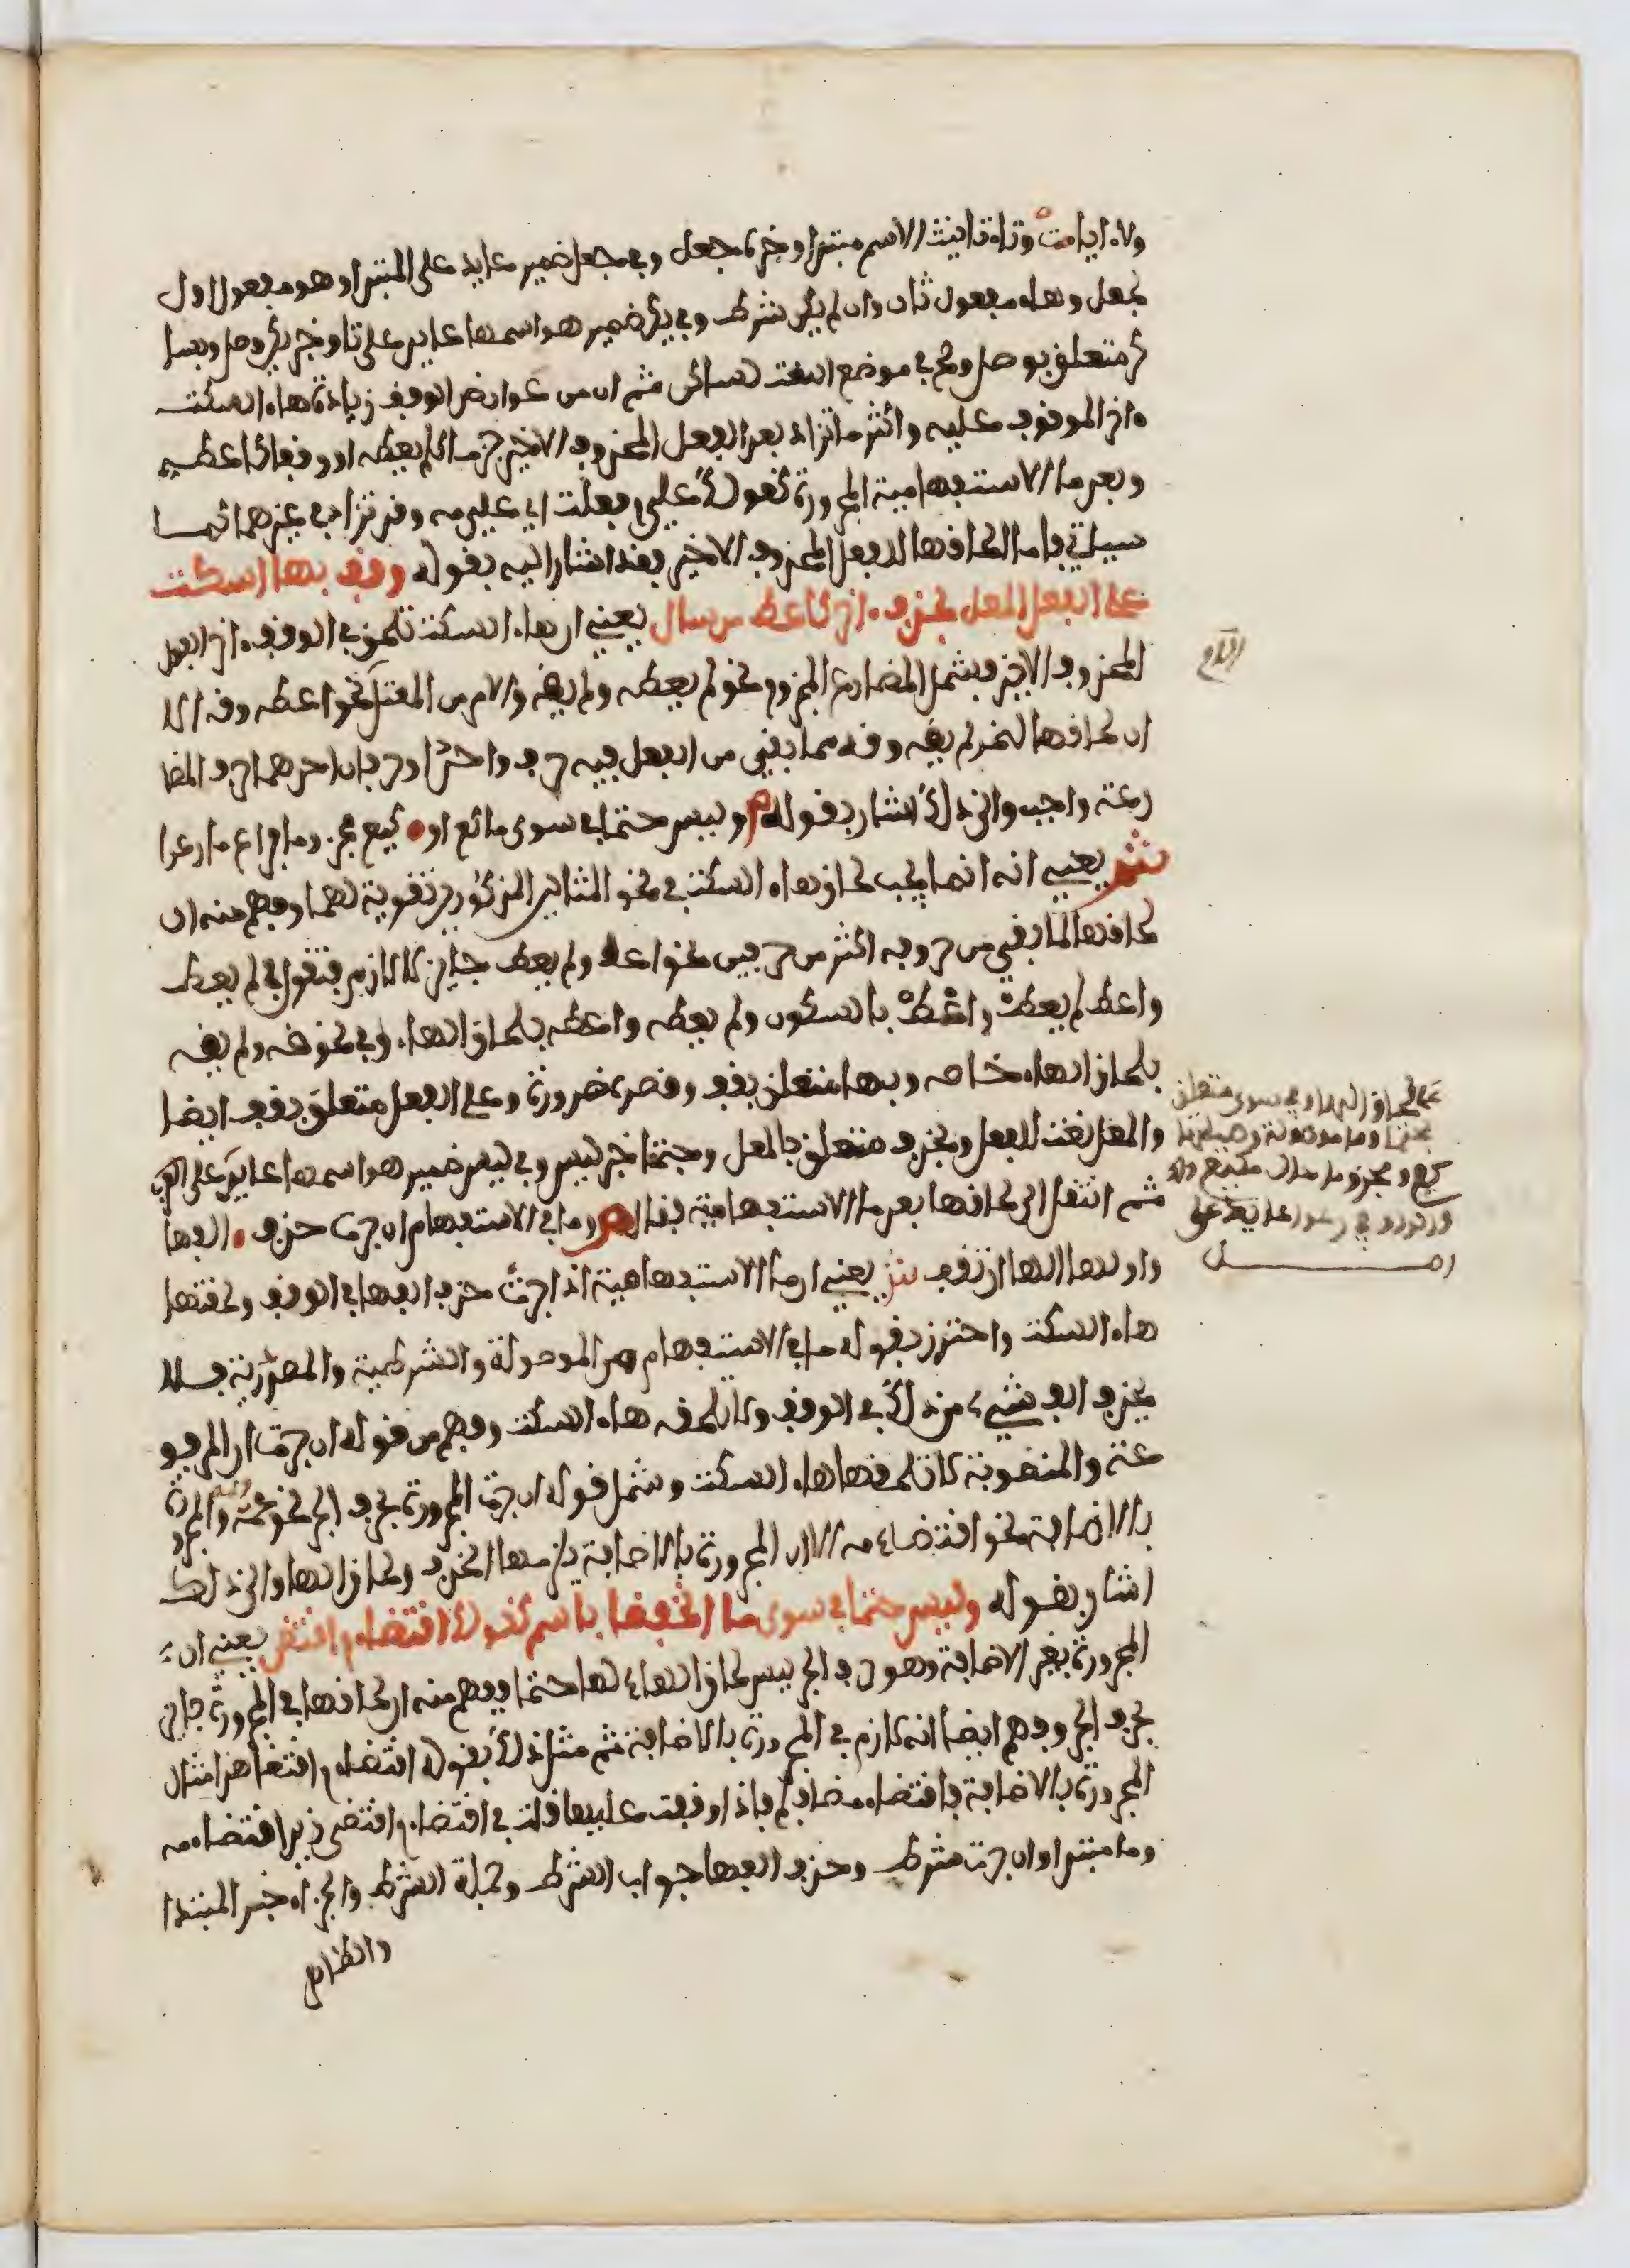 ولاه ايامت وتاء تانيث الاسم مبتدا وخبره جعل وفي جعل ضمير عايد على المبتدا وهو مفعول اول
بجعل وهاء مفعول ثان وان لم يكن شرط وفي يكن ضمير هو اسمها عايد على تا وخبر يكن وصل وبسا
كن متعلق بوصل وصح في موضع النعت لساكن ثم ان من عوارض الوقف زيادة هاء السكت
ءاخر الموقوف عليه واكثر ما تزاد بعد الفعل المحذوف الاخير جزما كلم يعطه او وقفا كاعطه
وبعد ما الاستفهامية المجرورة كقولك على م فعلت اي على مه وقد تزاد في غيرهما كما
سياتي فاما لحاقها للفعل المحذوف الاخير فقد اشار اليه بقوله وقف بها السكت
على الفعل المعل بحذف ءاخر كاعط من سال يعني ان هاء السكت تلحق في الوقف ءاخر الفعل
المحذوف الاخير فيشمل المضارع المجزوم نحو لم يعطه ولم يقه والامر من المعتل نحو اعطه وقه الا
ان لحاقها لنحو لم يقه وقه مما بقي من الفعل فيه حرف واحد او حرفان احدهما حرف المضا
رعة واجب والى ذلك اشار بقوله ص وليس حتما في سوى ما كع او كيع مجزوما فراع ما رعوا
ش يعني انه انما يجب لحاق هاء السكت في نحو المثالين المذكورين تقوية لهما وفهم منه ان
لحاقها لما بقي من حروفه اكثر من حرفين نحو اعط ولم يعط جايز لا لازم فتقول في لم يعط
واعط لم يعطْ واعْطْ بالسكون ولم يعطه واعطه بلحاق الهاء وفي نحو قه ولم يقه
بلحاق الهاء خاصه وبها متعلق بقف وقصره ضرورة وعلى الفعل متعلق بقف ايضا
والمعل نعت للفعل وبحذف متعلق بالمعل وحتما خبر ليس وفي ليس ضمير هو اسمها عايد على
ثم انتقل الى لحاقها بعد ما الاستفهامية فقال ص وما في الاستفهام ان جرت حذف الفها
واولها الها ان تقف ش يعني ان ما الاستفهامية اذا جرت حذف الفها في الوقف ولحقتها
هاء السكت واحترز بقوله ما في الاستفهام من الموصولة والشرطية والمصدرية فلا
يحذف الف شيء من ذلك في الوقف ولا تلحقه هاء السكت وفهم من قوله ان جرت ان المرفو
عة والمنصوبة لا تلحقها هاء السكت وشمل قوله ان جرت المجرورة بحرف الجر نحو عمه والمجرورة
بالاضافة نحو اقتضاء مه الا ان المجرورة بالاضافة يلزمها الحذف ولحاق الها والى ذلك
اشار بقوله وليس حتما في سوى ما انخفضا باسم كقولك اقتضاء م اقتضى يعني ان
المجرورة بغير الاضافة وهو حرف الجر ليس لحاق الهاء لها حتما وفهم منه ان لحاقها في المجرورة جايز
بحرف الجر وفهم ايضا انه لازم في المجرورة بالاضافة ثم مثل ذلك بقوله اقتضاء م اقتضا هذا مثال
المجرورة بالاضافة فاقتضاء مضاف لم فاذا وقفت عليها قلت في اقتضاء م اقتضى زيد اقتضاء مه
وما مبتدا وان جرت شرط وحذف الفها جواب الشرط وجملة الشرط والجزاء خبر المبتدا
والظاهر
على لحاق الهاء وفي سوى متعلق
بحتما وما موصولة وصلتها
كيع ومجزوما حال من كيع
والواو في رعوا عايد على
اصـــــل